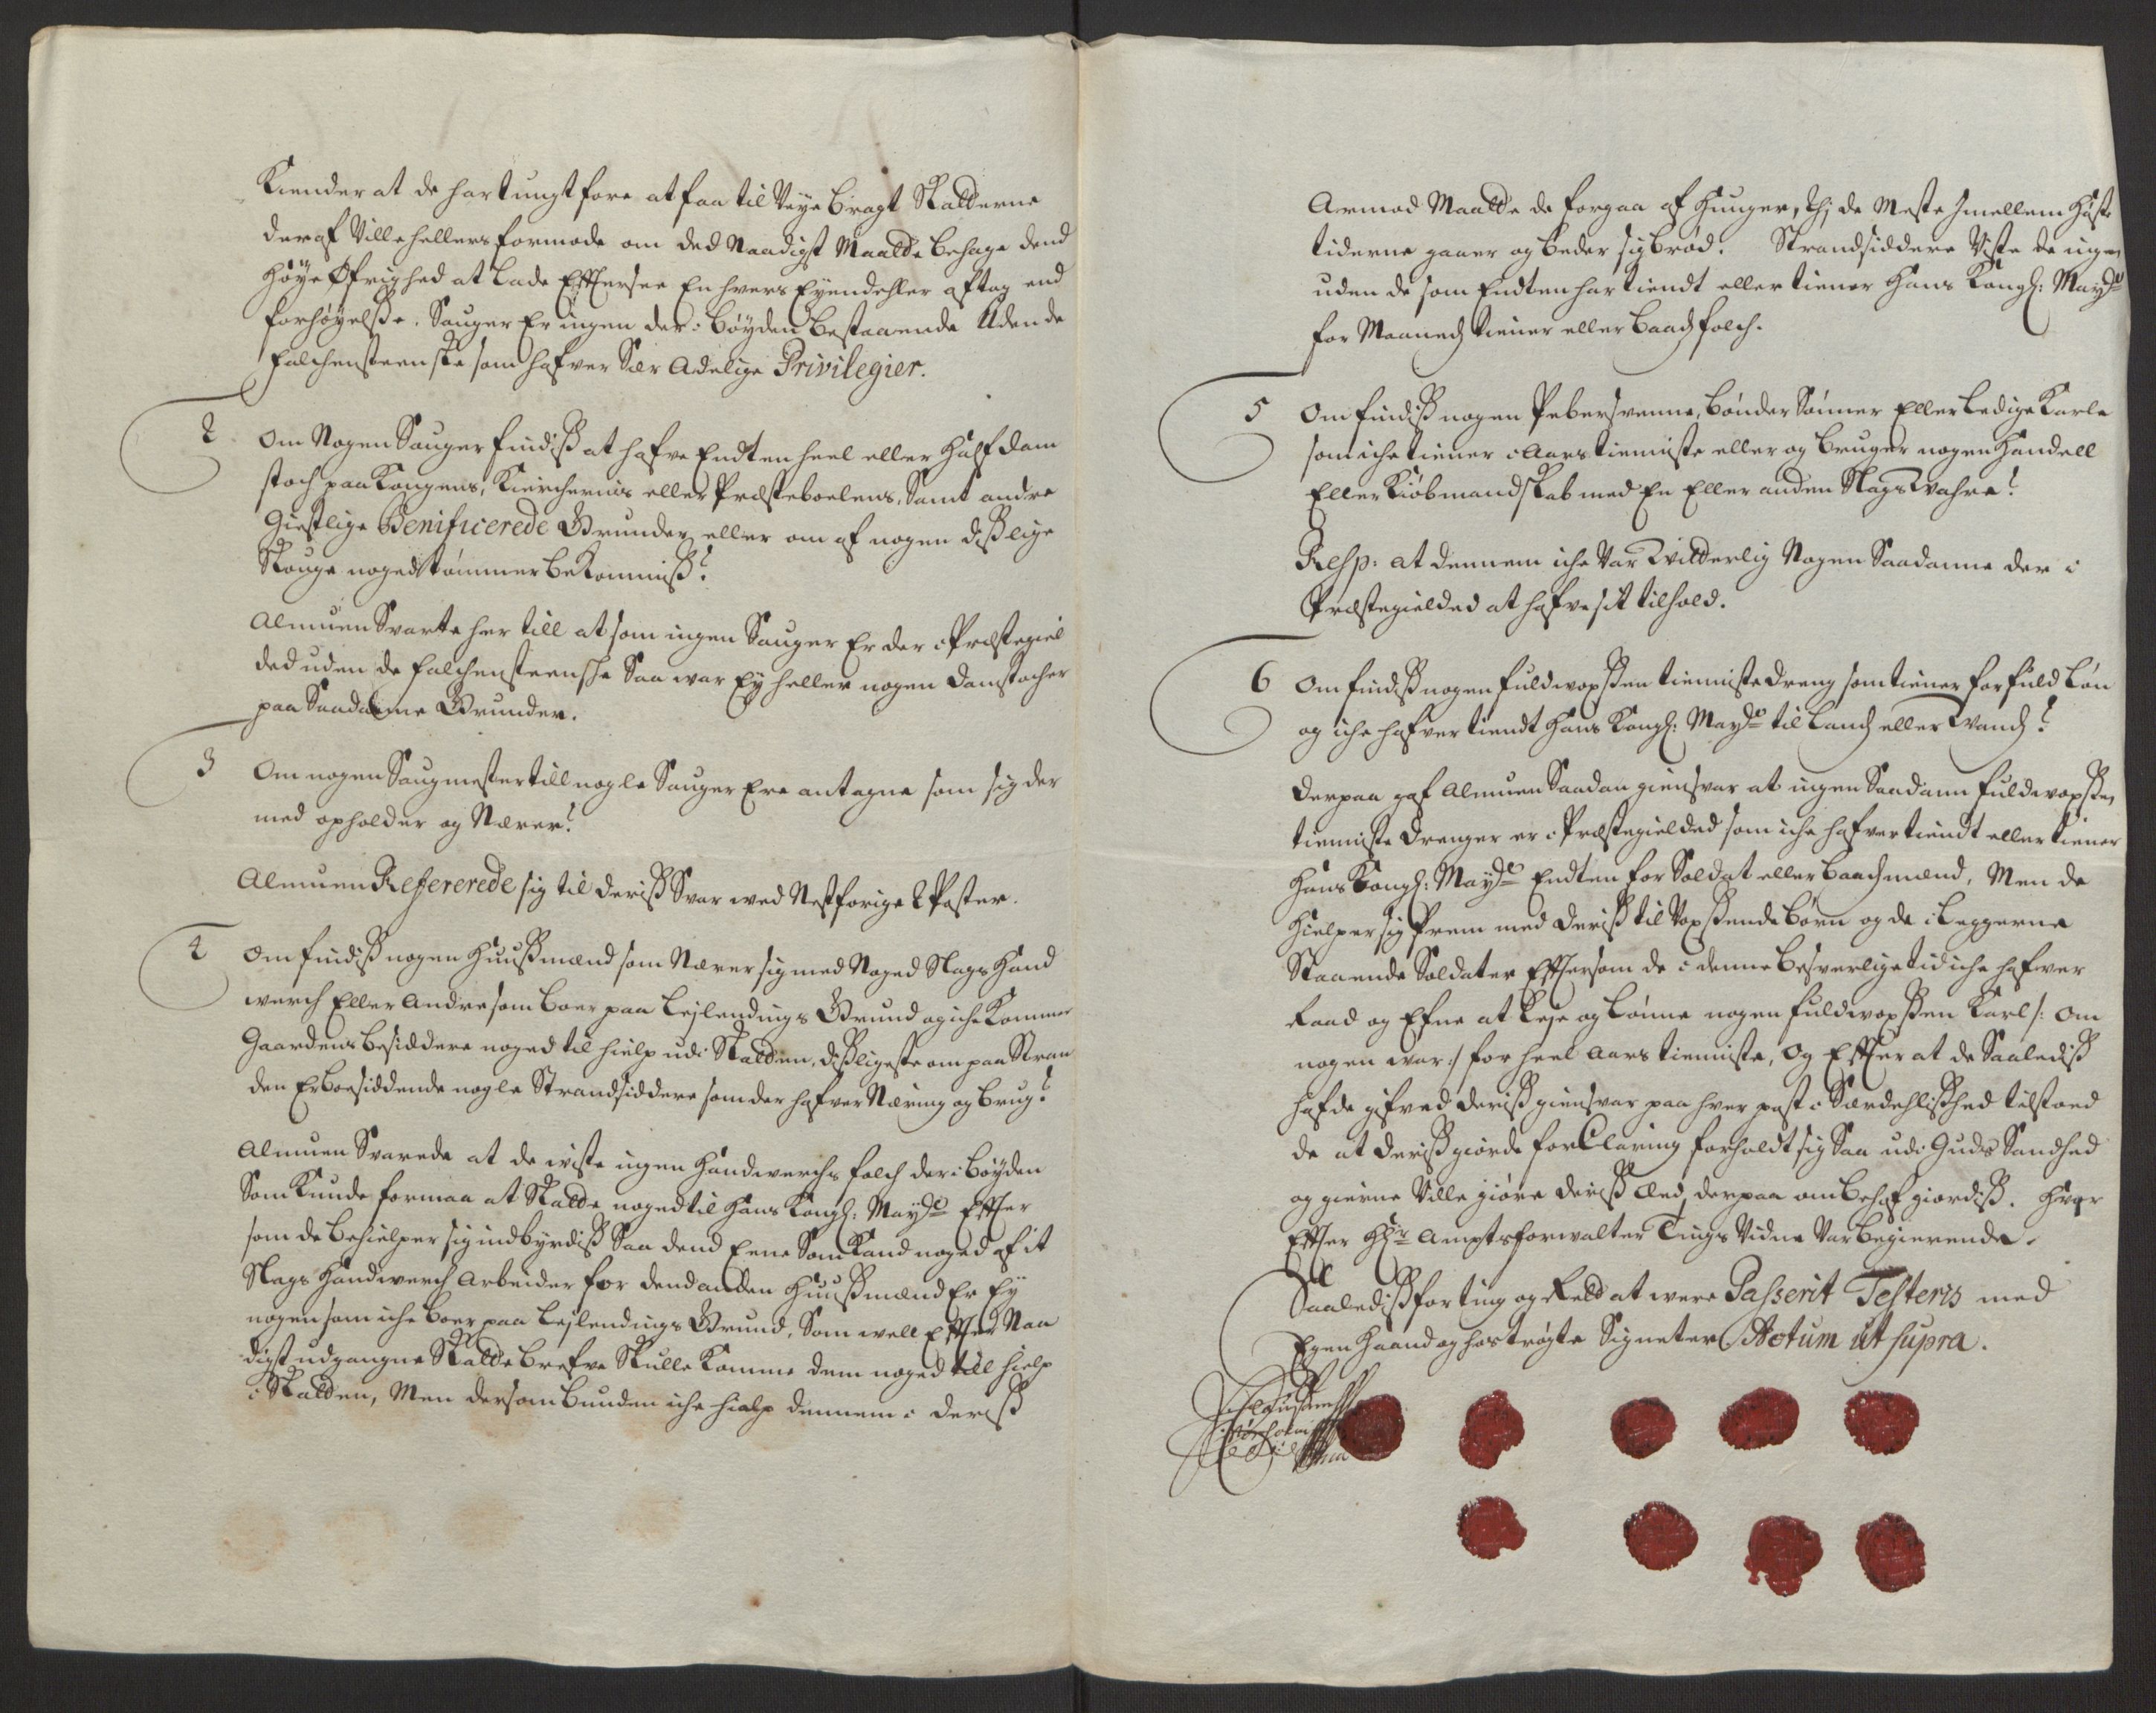 Kiender at de har tungt fore at faa til Veye bragt Skatterne
der af Ville hellers formode om ded Naadigst Maatte behage dend
høye Øfrighed at lade Efftersee En hvers Eyendehller aftag end
forhøyelsse. Sauger Er ingen der i bøyden bestaaende Uden de
falchensteenske som hafver Sær Adelige Privilegier.
2 Om Nogen Sauger findiss at hafve Endten heel eller half dam
stoch paa Kongens, Kierchernis eller Præsteboelens, Samt andre
Giestlige Benificerede Grunder, eller om af nogen disslige
Skouge noged tømmer bekommiss?
Almuen Svarte her till at som ingen Sauger Er der i Præstegiel
ded uden de falchensteensche Saa war Ey heller nogen damstocher
paa Saadanne Grunder.
3 Om nogen Saugmester till nogle Sauger Ere antagne som sig der
med opholder og Nærer?
Almuen Refererede sig til deriss Svar wed Nestforige 2 Poster.
4 Om findiss nogen Huussmænd som Nærer sig med Noged Slags Hand
werch Eller Andre som boer paa Leylendings Grund og iche Kommer
Gaardens besiddere noged til hielp udi Skatten, dissligeste om paa Stran
den Er boesiddende nogle Strandsiddere som der hafver Næring og brug?
Almuen Svarede at de wiste ingen Handwerchs folch der i bøyden
Som Kunde formaa at Skatte noged til Hans Kongl: Mayts Effter
som de behielper sig indbyrdiss Saa dend Eene Som Kand noged af it
Slags Handwerch Arbeider for dend anden Huussmænd Er Ey
nogen som iche boer paa Leylendings Grund, Som well Effter Naa
digst udgangne Skattebrefve Skulle Komme dem noged till hielp
i Skatten, Men dersom bunden iche hialp dennem i deriss
Armod Maatte de forgaa af Hunger, thj de Meste Jmellem Høste
tiderne gaaer og beder sig brød. Strandsiddere Viste de ingen
uden de som Endten har tiendt eller tiener Hans Kongl: Mayts
for Maaneds tiener eller baadsfolch.
5 Om findiss nogen Pebersvenne, bønder Sønner Eller Ledige Karle
som iche tiener i Aars tienniste eller og bruger nogen Handell
Eller Kiøbmandskab med En Eller anden Slags Wahre?
Resp: at dennem iche Var Witterlig Nogen Saadanne der i
Præstegielded at hafve sit tilhold.
6 Om findiss nogen fuldwoxssen tienniste dreng som tiener for fuld Løn
og iche hafver tiendt Hans Kongl: Mayts til Lands eller Wands?
Derpaa gaf Almuen Saadan giensvar at ingen Saadann fuldwoxssen
tienniste drenger er i Præstegielded som iche hafver tiendt eller tiener
Hans Kongl: Mayts Endten for Soldat eller baadsmænd, Men de
Hielper sig frem med deriss til Voxssende børn og de i Leggerne
Staaende Soldater Effttersom de i denne besverlige tid iche hafver
Raad og Efne at Leje og Lønne nogen fuldwoxssen Karl /: om
nogen war :/ for heel Aars tienniste, Og Effter at de Saalediss
hafde gifved deriss giensvar paa hver post i Særdehlisshed tilstoed
de at deriss giorde forClaring forholdt sig Saa udi Guds Sandhed
og gierne Ville giøre deriss Aed derpaa om behof giordiss. Hvor
Effter Hr Amptsforwalter Tings Vidne Var begierende.
Saalediss for ting og Reld at were Passerit Testeris med
Egen Haand og hostrøgte Signeter Actum Ut supra.